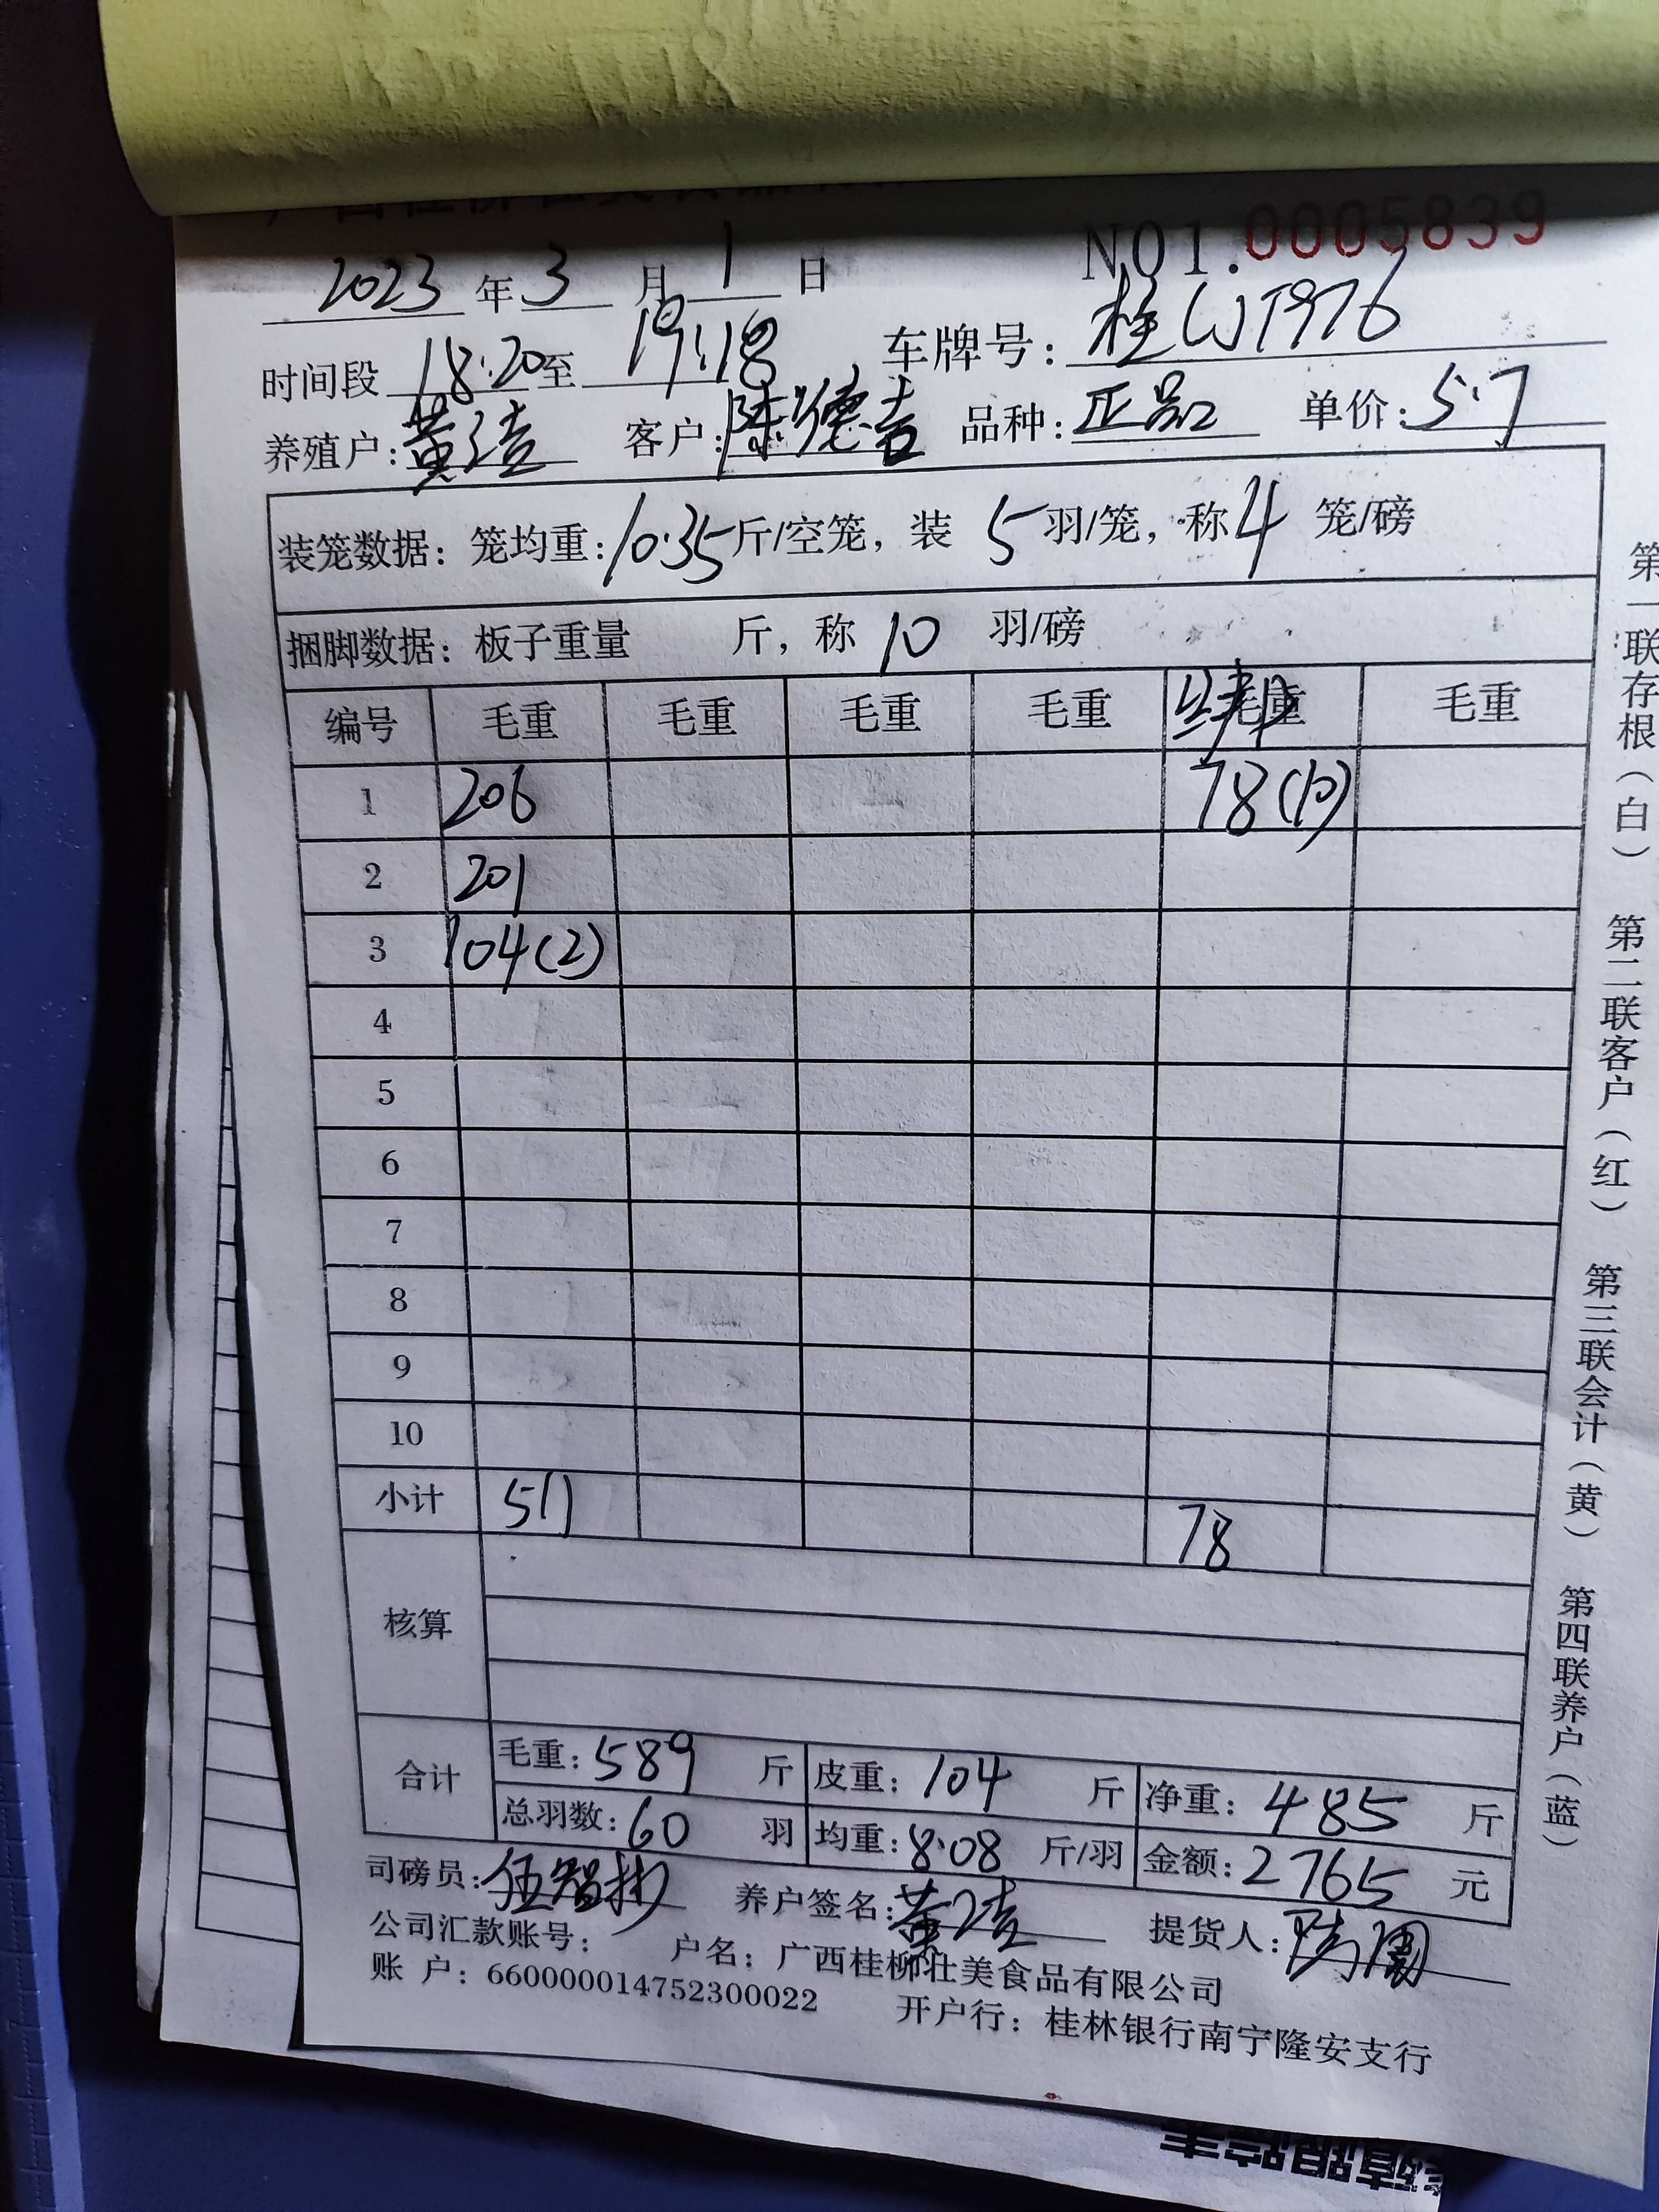 NO1.0005839
2023年3月1日
时间段 18:20至19:18 车牌号:桂WJT976
养殖户:黄 客户:陈德吉 品种:正品 单价:5.7
装笼数据：笼均重:10.35斤/空笼，装5羽/笼，称4笼/磅
捆脚数据：板子重量 斤，称10羽/磅
编号 毛重 毛重 毛重 毛重 毛重 毛重
1 206 78(10)
2 201
3 104(2)
4
5
6
7
8
9
10
小计 511 78
核算
合计 毛重：589斤 皮重：104斤 净重：485斤
总羽数：60羽 均重：8.08斤/羽 金额：2765元
司磅员：伍智彬 养户签名：黄 提货人：
公司汇款账号： 户名：广西桂柳壮美食品有限公司
账 户：660000014752300022 开户行：桂林银行南宁隆安支行
第一联存根（白） 第二联客户（红） 第三联会计（黄） 第四联养户（蓝）